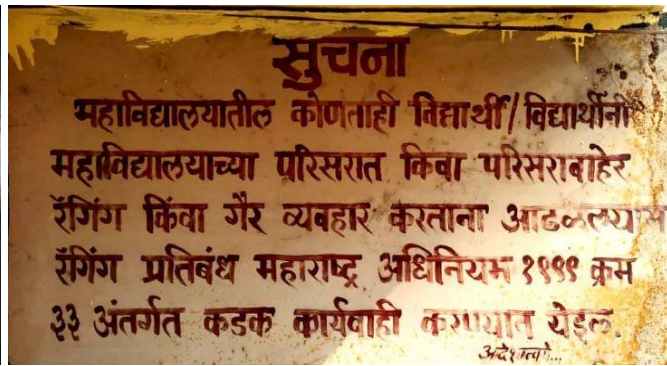 सुचना
महाविद्यालयातील कोणताही विद्यार्थी/विद्यार्थीनी
महाविद्यालयाच्या परिसरात किंवा परिसराबाहेर
रॅगिंग किंवा गैर व्यवहार करताना आढळल्यास
रॅगिंग प्रतिबंध महाराष्ट्र अधिनियम १९९९ क्रम
३३ अंतर्गत कडक कार्यवाही करण्यात येईल.